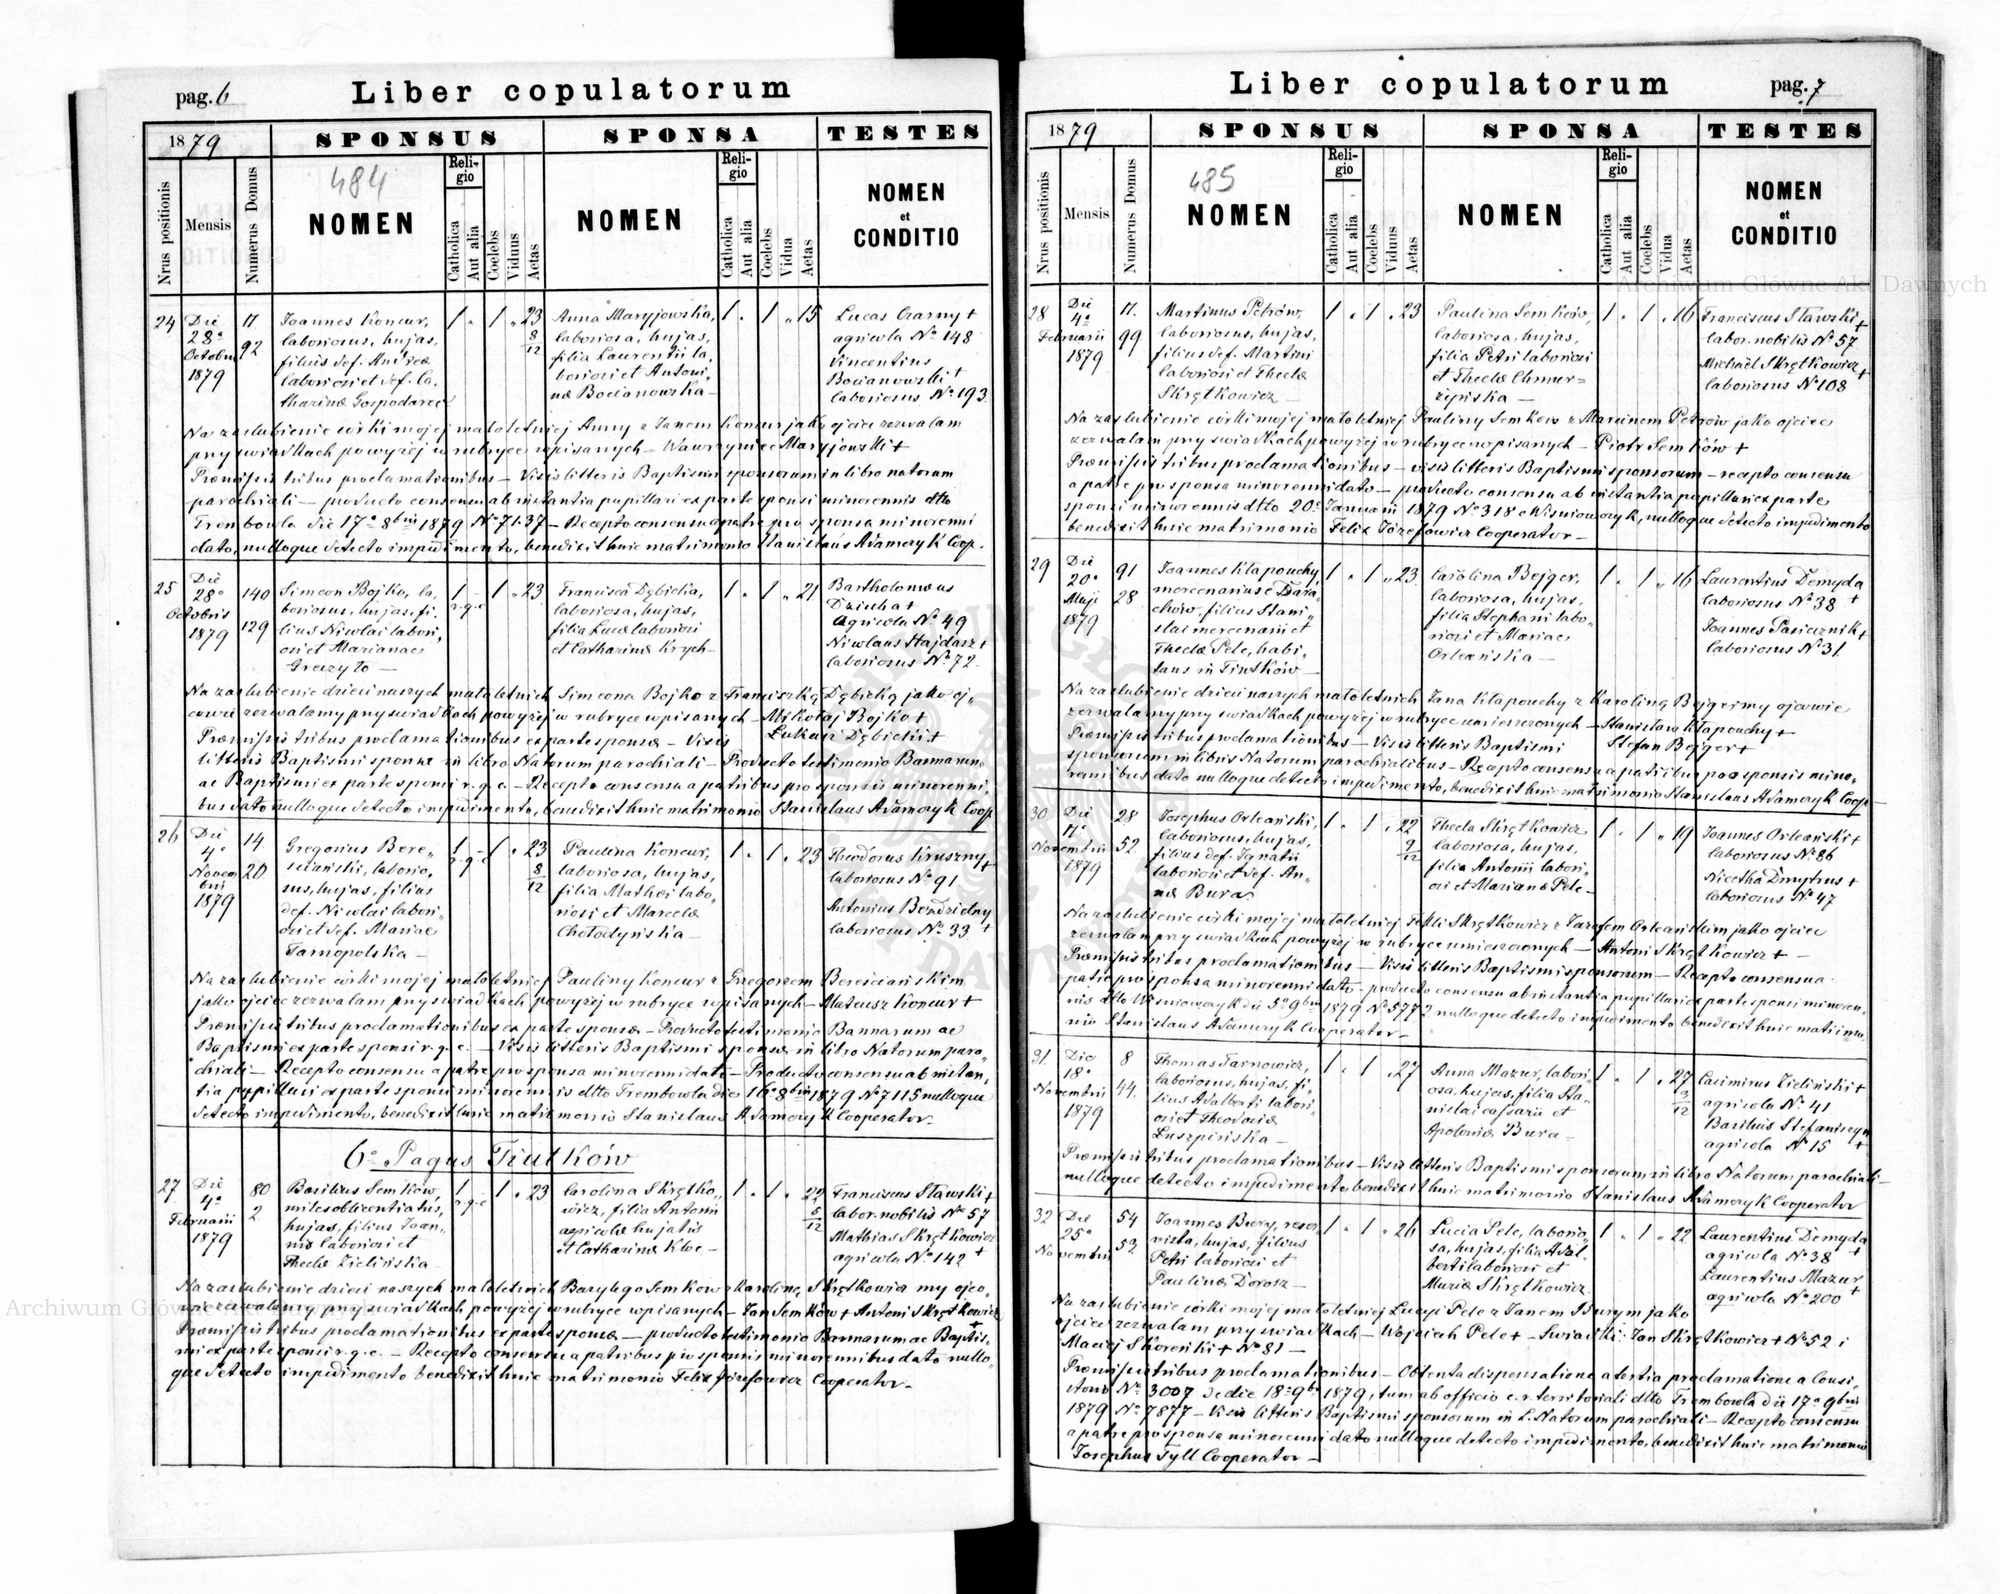 pag. 6
Liber copulatorum
1879
SPONSUS
SPONSA
TESTES
Nrus positionis
Mensis
Numerus Domus
484
NOMEN
Religio
Catholica
Aut alia
Coelebs
Viduus
Aetas
NOMEN
Religio
Catholica
Aut alia
Coelebs
Vidua
Aetas
NOMEN
et
CONDITIO
24
Die
28a
Octobris
1879
17
92
Joannes Koncur,
laboriosus, hujas,
filius def. Andreae
laboriosi et def. Ca
tharinae Gospodarec
1 . 1 " 23 8/12
Anna Maryjowska,
laboriosa, hujas,
filia Laurentii la
boriosi et Antoni
nae Bocianowska –
1 . 1 " 15
Lucas Czarny +
agricola No 148
Vincentius
Bocianowski +
laboriosus No 193
Na zaślubienie córki mojej małoletniej Anny z Janem Koncur jako ojciec zezwalam
przy świadkach powyżej w rubryce wpisanych – Wawrzyniec Maryjowski +
Praemissis tribus proclamationibus – Visis litteris Baptismi sponsorum in libro natorum
parochiali – producto consensu ab instantia pupillari ex parte sponsi minorennis dtto
Trembowla die 17a 8bris 1879 No 7137 – Recepto consensu a patre pro sponsa minorenni
dato, nulloque detecto impedimento, benedixit huic matrimonio Stanislaus Adamczyk Coop.
25
Die
28a
Octobris
1879
140
129
Simeon Bojko, la
boriosus, hujas, fi
lius Nicolai labori
osi et Marianae
Greczyło –
1 r.g.c – 1 " 23
Francisca Dębicka,
laboriosa, hujas,
filia Lucae laboriosi
et Catharinae Krych –
1 . 1 " 21
Bartholomaeus
Dziuba +
agricola No 49
Nicolaus Hajdasz +
laboriosus No 72.
Na zaślubienie dzieci naszych małoletnich Simeona Bojko z Franciszką Dębicką jako oj
cowie zezwalamy przy świadkach powyżej w rubryce wpisanych – Mikołaj Bojko +
Łukasz Dębicki +
Praemissis tribus proclamationibus ex parte sponsae – Visis
litteris Baptismi sponsae in libro Natorum parochiali – Producto testimonio Bannarum
ac Baptismi ex parte sponsi r.g.c. – Recepto consensu a patribus pro sponsis minorenni
bus dato nulloque detecto impedimento, benedixit huic matrimonio Stanislaus Adamczyk Coop
26
Die
4a
Novem
bris
1879
14
20
Gregorius Bere
sciański, laborio
sus, hujas, filius
def. Nicolai labori
osi et def. Mariae
Tarnopolska –
1 r.g.c – 1 " 23 8/12
Paulina Koncur,
laboriosa, hujas,
filia Mathei labo
riosi et Marcelae
Chołodyńska –
1 . 1 " 23
Theodorus Kruszny +
laboriosus No 91
Antonius Bendzielny
laboriosus No 33 +
Na zaślubienie córki mojej małoletniej Pauliny Koncur z Gregorzem Beresciańskim
jako ojciec zezwalam przy świadkach powyżej w rubryce wpisanych – Mateusz Koncur +
Praemissis tribus proclamationibus ex parte sponsae – Producto testimonio Bannarum ac
Baptismi ex parte sponsi r.g.c. – Visis litteris Baptismi sponsae in libro Natorum paro
chiali – Recepto consensu a patre pro sponsa minorenni dato – Producto consensu ab instan
tia pupillari ex parte sponsi minorennis dtto Trembowla die 16a 8bris 1879 No 7115 nulloque
detecto impedimento, benedixit huic matrimonio Stanislaus Adamczyk Cooperator.
6o Pagus Tiutków
27
Die
4a
Februarii
1879
80
2
Basilius Semków,
miles oblicentiatus,
hujas, filius Joan
nis laboriosi et
Theclae Zielińska –
1 r.g.c – 1 " 23
Carolina Skrętko
wicz, filia Antonii
agricolae hujatis
et Catharinae Kloc –
1 . 1 " 22 5/12
Franciscus Stawski +
labor. nobilis No 57
Mathias Skrętkowicz
agricola No 142 +
Na zaślubienie dzieci naszych małoletnich Bazylego Semkow z Karoliną Skrętkowicz my ojco
wie zezwalamy przy świadkach powyżej w rubryce wpisanych – Jan Semków + Antoni Skrętkowicz +
Praemissis tribus proclamationibus ex parte sponsae – producto testimonio Bannarum ac Baptis
mi ex parte sponsi r.g.c. – Recepto consensu a patribus pro sponsis minorennibus dato nullo
que detecto impedimento benedixit huic matrimonio Felix Józefowicz Cooperator –
Liber copulatorum
pag. 7
1879
SPONSUS
SPONSA
TESTES
Nrus positionis
Mensis
Numerus Domus
485
NOMEN
Religio
Catholica
Aut alia
Coelebs
Viduus
Aetas
NOMEN
Religio
Catholica
Aut alia
Coelebs
Vidua
Aetas
NOMEN
et
CONDITIO
28
Die
4a
Februarii
1879
17.
99
Martinus Petrów,
laboriosus, hujas,
filius def. Martini
laboriosi et Theclae
Skrętkowicz –
1 . 1 . 23
Paulina Semków,
laboriosa, hujas,
filia Petri laboriosi
et Theclae Chmur=
zyńska –
1 . 1 . 16
Franciscus Stawski +
labor. nobilis No 57
Michael Skrętkowicz +
laboriosus No 108
Na zaślubienie córki mojej małoletniej Pauliny Semkow z Marcinem Petrow jako ojciec
zezwalam przy świadkach powyżej w rubryce wpisanych – Piotr Semków +
Praemissis tribus proclamationibus – visis litteris Baptismi sponsorum – recepto consensu
a patre pro sponsa minorenni dato – producto consensu ab instantia pupillari ex parte
sponsi minorennis dtto 20. Januarii 1879 No 318 e Wiśniowczyk, nulloque detecto impedimento
benedixit huic matrimonio Felix Józefowicz Cooperator –
29
Die
20a
Maji
1879
91
28
Joannes Kłapouchy,
mercenarius e Dara
chów, filius Stani
slai mercenarii et
Theclae Pelc, habi
tans in Tiutków –
1 . 1 " 23
Carolina Bejger,
laboriosa, hujas,
filia Stephani labo
riosi et Mariae
Orleańska –
1 . 1 " 16
Laurentius Demyda
laboriosus No 38 +
Joannes Pasicznik +
laboriosus No 31
Na zaślubienie dzieci naszych małoletnich Jana Kłapouchy z Karoliną Bejger my ojcowie
zezwalamy przy świadkach powyżej w rubryce umieszczonych – Stanisław Kłapouchy +
Stefan Bejger +
Praemissis tribus proclamationibus – Visis litteris Baptismi
sponsorum in libris Natorum parochialibus – Recepto consensu a patribus pro sponsis mino
rennibus dato nulloque detecto impedimento, benedixit huic matrimonio Stanislaus Adamczyk Coop –
30
Die
11a
Novembris
1879
28
52
Josephus Orleański,
laboriosus, hujas,
filius def. Ignatii
laboriosi et def. An
nae Bura
1 . 1 . 22 9/12
Thecla Skrętkowicz
laboriosa, hujas,
filia Antonii labori
osi et Marianae Pelc –
1 . 1 " 19
Joannes Orleański +
laboriosus No 86
Nicetha Dmytrus +
laboriosus No 47
Na zaślubienie córki mojej małoletniej Tekli Skrętkowicz z Józefem Orleańskim jako ojciec
zezwalam przy świadkach powyżej w rubryce umieszczonych – Antoni Skrętkowicz + –
Praemissis tribus proclamationibus – Visis litteris Baptismi sponsorum – Recepto consensu a
patre pro sponsa minorenni dato – producto consensu ab instantia pupillari ex parte sponsi minoren
nis dtto Wiśniowczyk die 5a 9bris 1879 No 5772 nulloque detecto impedimento benedixit huic matrimo
nio Stanislaus Adamczyk Cooperator –
31
Die
18a
Novembris
1879
8
44.
Thomas Tarnowicz,
laboriosus, hujas, fi
lius Adalberti labori
osi et Theodosiae
Łuszpińska –
1 . 1 . 27
Anna Mazur, labori
osa, hujas, filia Sta
nislai cassarii et
Apoloniae Bura –
1 . 1 . 27 3/12
Casimirus Zieliński +
agricola No 41
Basilius Stefaniszyn
agricola No 15 +
Praemissis tribus proclamationibus – Visis litteris Baptismi sponsorum in libro Natorum parochiali –
nulloque detecto impedimento, benedixit huic matrimonio Stanislaus Adamczyk Cooperator
32
Die
25a
Novembris
54
53
Joannes Bury, reser
vista, hujas, filius
Petri laboriosi et
Paulinae Dorosz –
1 . 1 " 26
Lucia Pelc, laborio
sa, hujas, filia Adal
berti laboriosi et
Mariae Skrętkowicz
1 . 1 " 22
Laurentius Demyda
agricola No 38 +
Laurentius Mazur
agricola No 200 +
Na zaślubienie córki mojej małoletniej Łucyi Pelc z Janem Burym jako
ojciec zezwalam przy świadkach – Wojciech Pelc + – Świadki: Jan Skrętkowicz + No 52 i
Maciej Skoreński + No 81 –
Praemissis tribus proclamationibus – Obtenta dispensatione a tertia proclamatione a Consi
storio No 3007 de die 18a 9bris 1879, tum ab officio c.r. territoriali dtto Trembowla die 17a 9bris
1879 No 7877 – Visis litteris Baptismi sponsorum in L. Natorum parochiali – Recepto consensu
a patre pro sponsa minorenni dato nulloque detecto impedimento, benedixit huic matrimonio
Josephus Tyll Cooperator –
Archiwum Główne Akt Dawnych